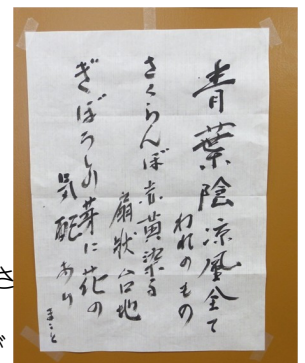 青葉陰涼風全て
われのもの
さくらんぼ赤黄染る
扇状台地
ぎぼうしの芽に花の
気配あり
まこと
さ
が